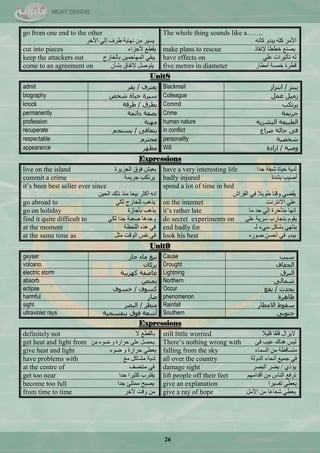 HELMY DESIGNS
go from one end to the other
يسير من نهاية طرف إلي الآخر
The whole thing sounds like a.......
الأمر كله يبدو كأنه
cut into pieces
يقطع لأجزاء
make plans to rescue
يصنع خططا لإنقاذ
keep the attackers out
يبقي المهاجمين بالخارج
have effects on
له تأثيرات علي
come to an agreement on
يتوصل لاتفاق بشأن
five metres in diameter
قطرة خمسة أمتار
Unit8
admit
يعترف / يقر
Blackmail
يبتز / ابتزاز
biography
سيرة حياة شخص
Colleague
زميل عمل
knock
يطرق / طرقة
Commit
يرتكب
permanently
بصفة دائمة
Crime
جريمة
profession
مهنة
human nature
الطبيعة البشرية
recuperate
يتعافى / يستجم
in conflict
في حالة صراع
respectable
محترم
personality
شخصية
appearance
مظهر
Will
وصية / إرادة
Expressions
live on the island
يعيش فوق الجزيرة
have a very interesting life
لدية حياة شيقة جدا
commit a crime
يرتكب جريمة
badly injured
أصيب بشدة
it's been best seller ever since
أنه أكثر بيعا منذ ذلك الحين
spend a lot of time in bed
يقضي وقتا طويلا في الفراش
go abroad to
يذهب للخارج لكي
on the internet
علي الانترنت
go on holiday
يذهب بأجازة
it's rather late
أنها متأخرة إلي حد ما
find it quite difficult to
وجدها صعبة جدا لكي
do secret experiments on
يقوم بتجارب سرية علي
at the moment
في هذه اللحظة
end badly for
ينتهي بشكل سيء لـ
at the same time as
في نفس الوقت مثل
look his best
يبدو في أحسن صوره
Unit9
geyser
نبع ماء حار
Cause
سبب
volcano
بركان
Drought
الجفاف
electric storm
عاصفة كهربية
Lightning
البرق
absorb
يمتص
Northern
شمالي
eclipse
كسوف / خسوف
Occur
يحدث / يقع
harmful
ضار
phenomenon
ظاهرة
sight
منظر / البصر
Rainfall
سقوط الأمطار
ultraviolet rays
أشعة فوق بنفسجية
Southern
جنوبي
Expressions
definitely not
بالقطع لا
still little worried
لايزال قلقا قليلا
get heat and light from
يحصل على حرارة و ضوء من
There's nothing wrong with
ليس هناك عيب في
give heat and light
يعطي حرارة و ضوء
falling from the sky
متساقطة من السماء
have problems with
لدية مشاكل مع
all over the country
في جميع أنحاء الدولة
at the centre of
في منتصف
damage sight
يؤذي / يضر البصر
get too near
يقترب كثيرا جدا
lift people off their feet
ترفع الناس من أقدامهم
become too full
يصبح ممتلئ جدا
give an explanation
يعطي تفسيرا
from time to time
من وقت لآخر
give a ray of hope
يعطي شعاعا من الأمل
26